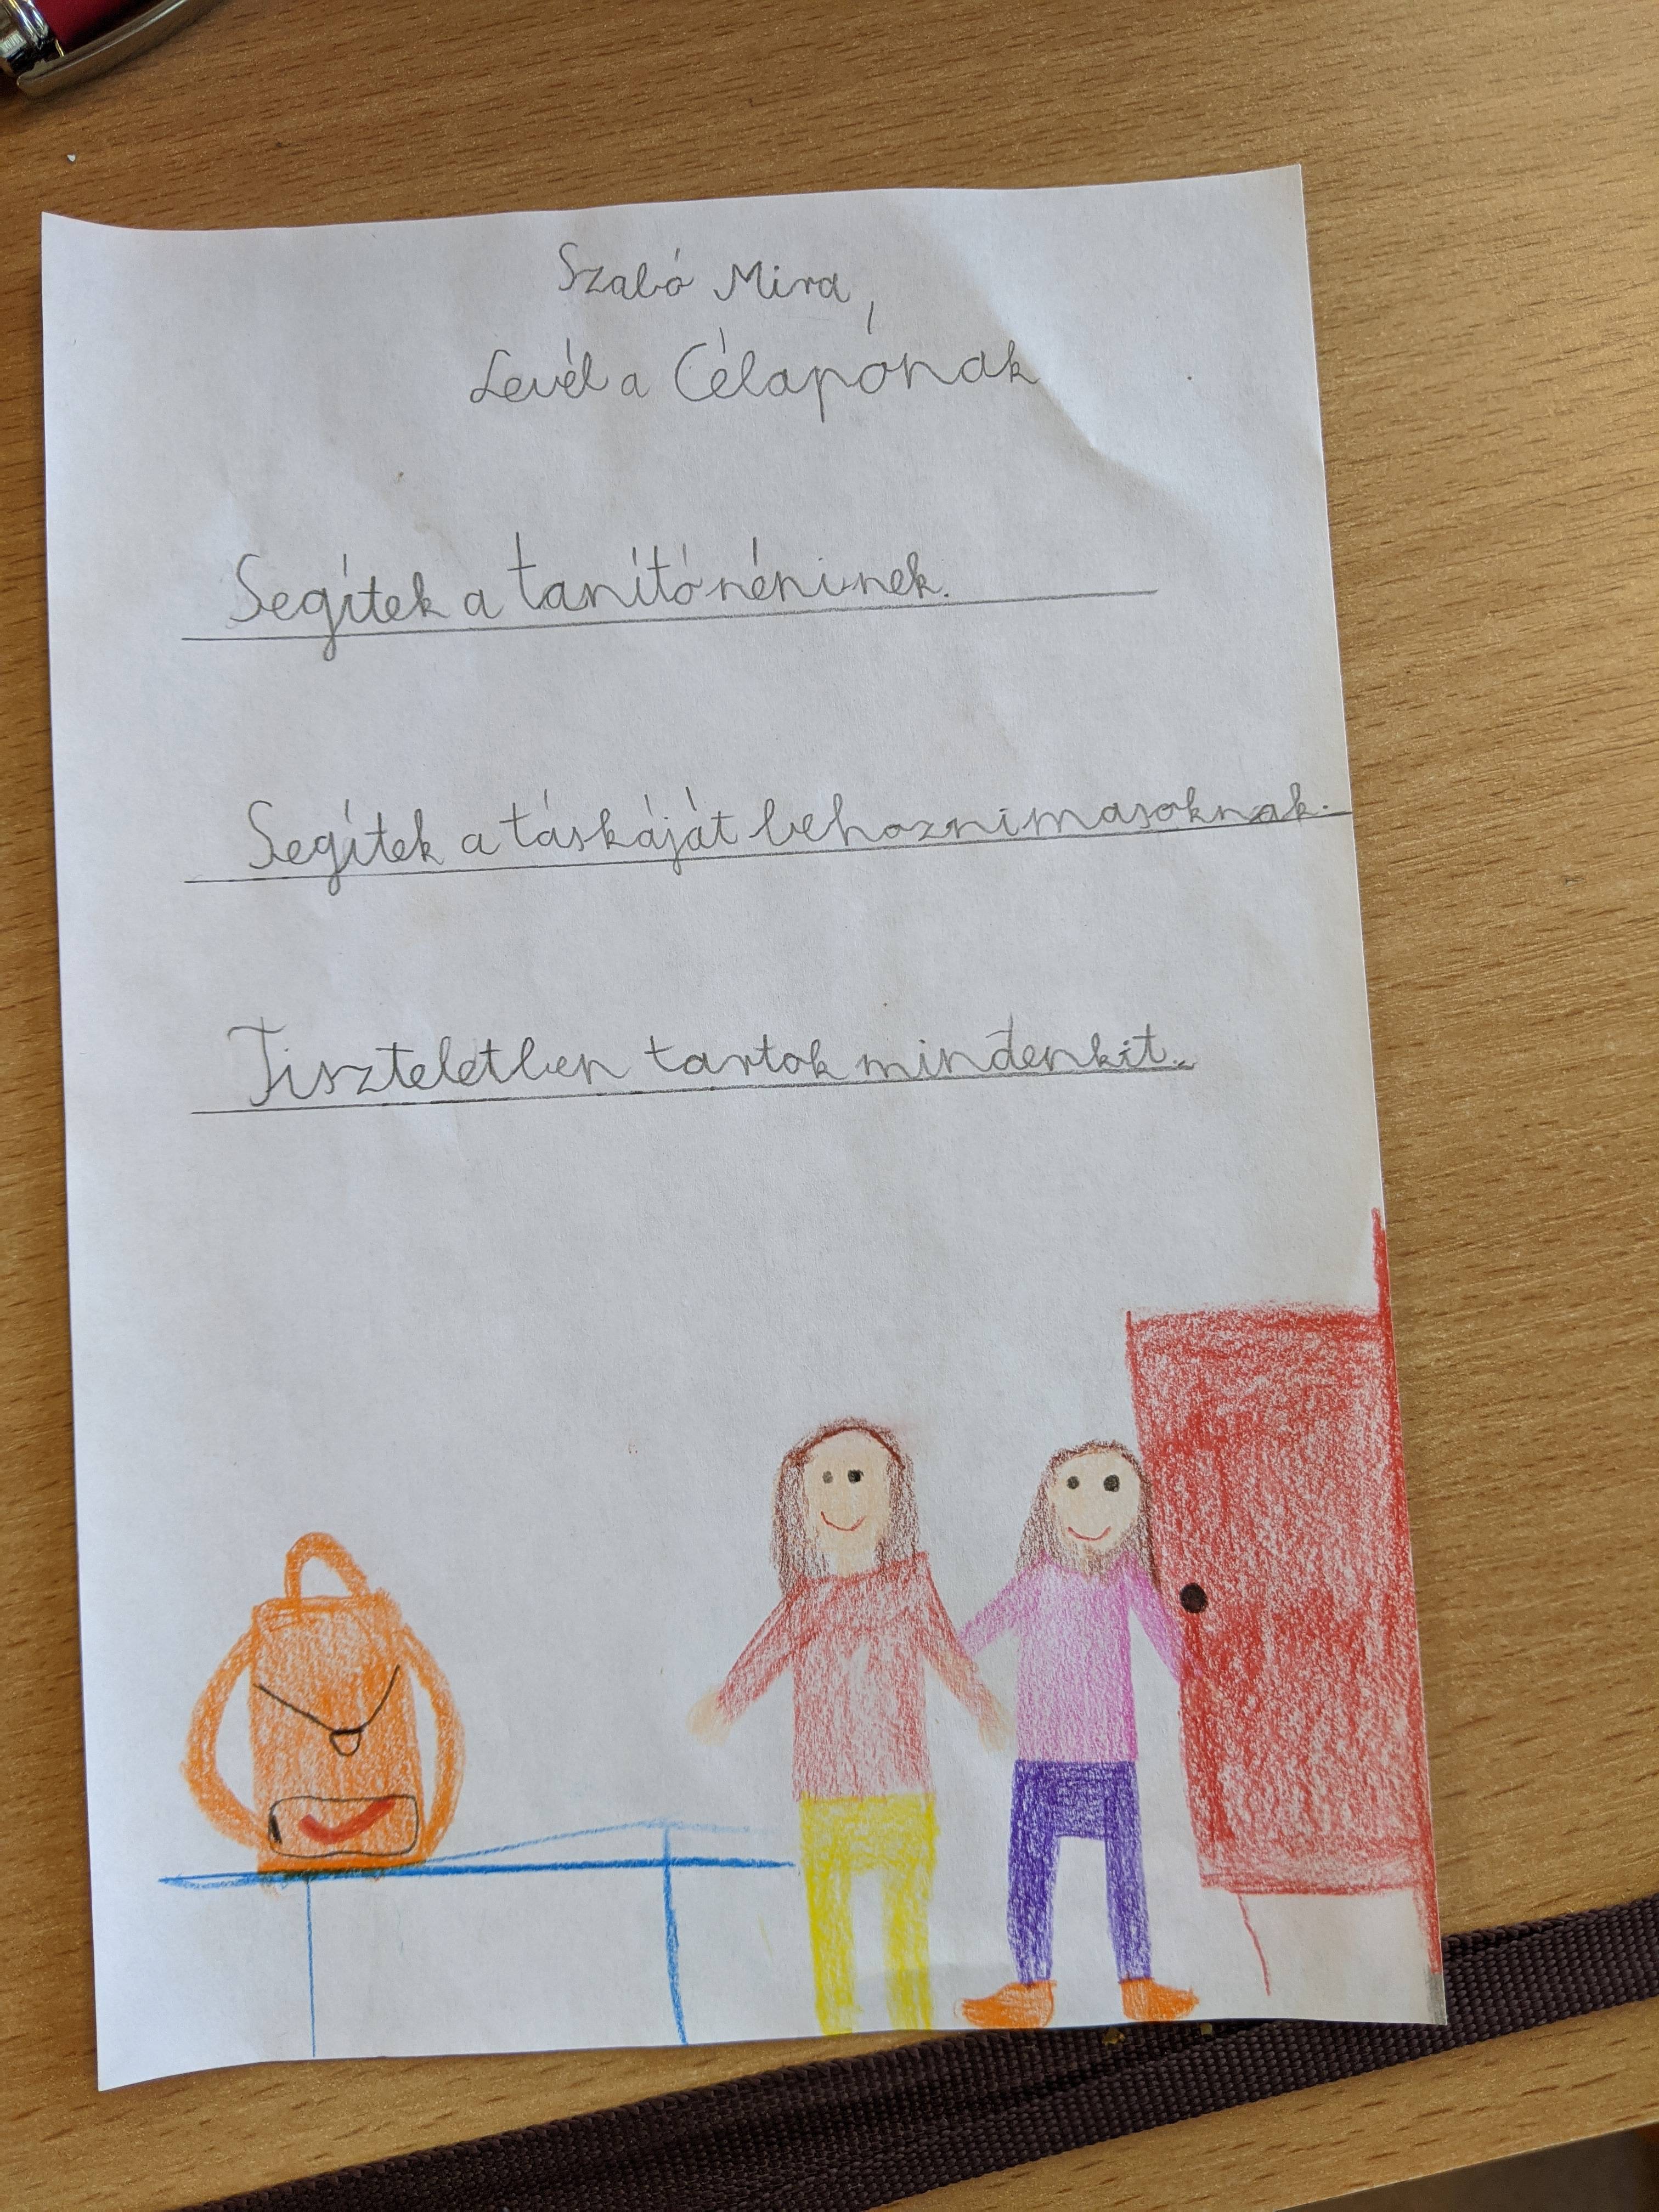 Szabó Mira,
Levél a Célapónak
Segítek a tanítónéninek.
Segítek a táskáját behoznimasoknak.
Tiszteletben tartok mindenkit.